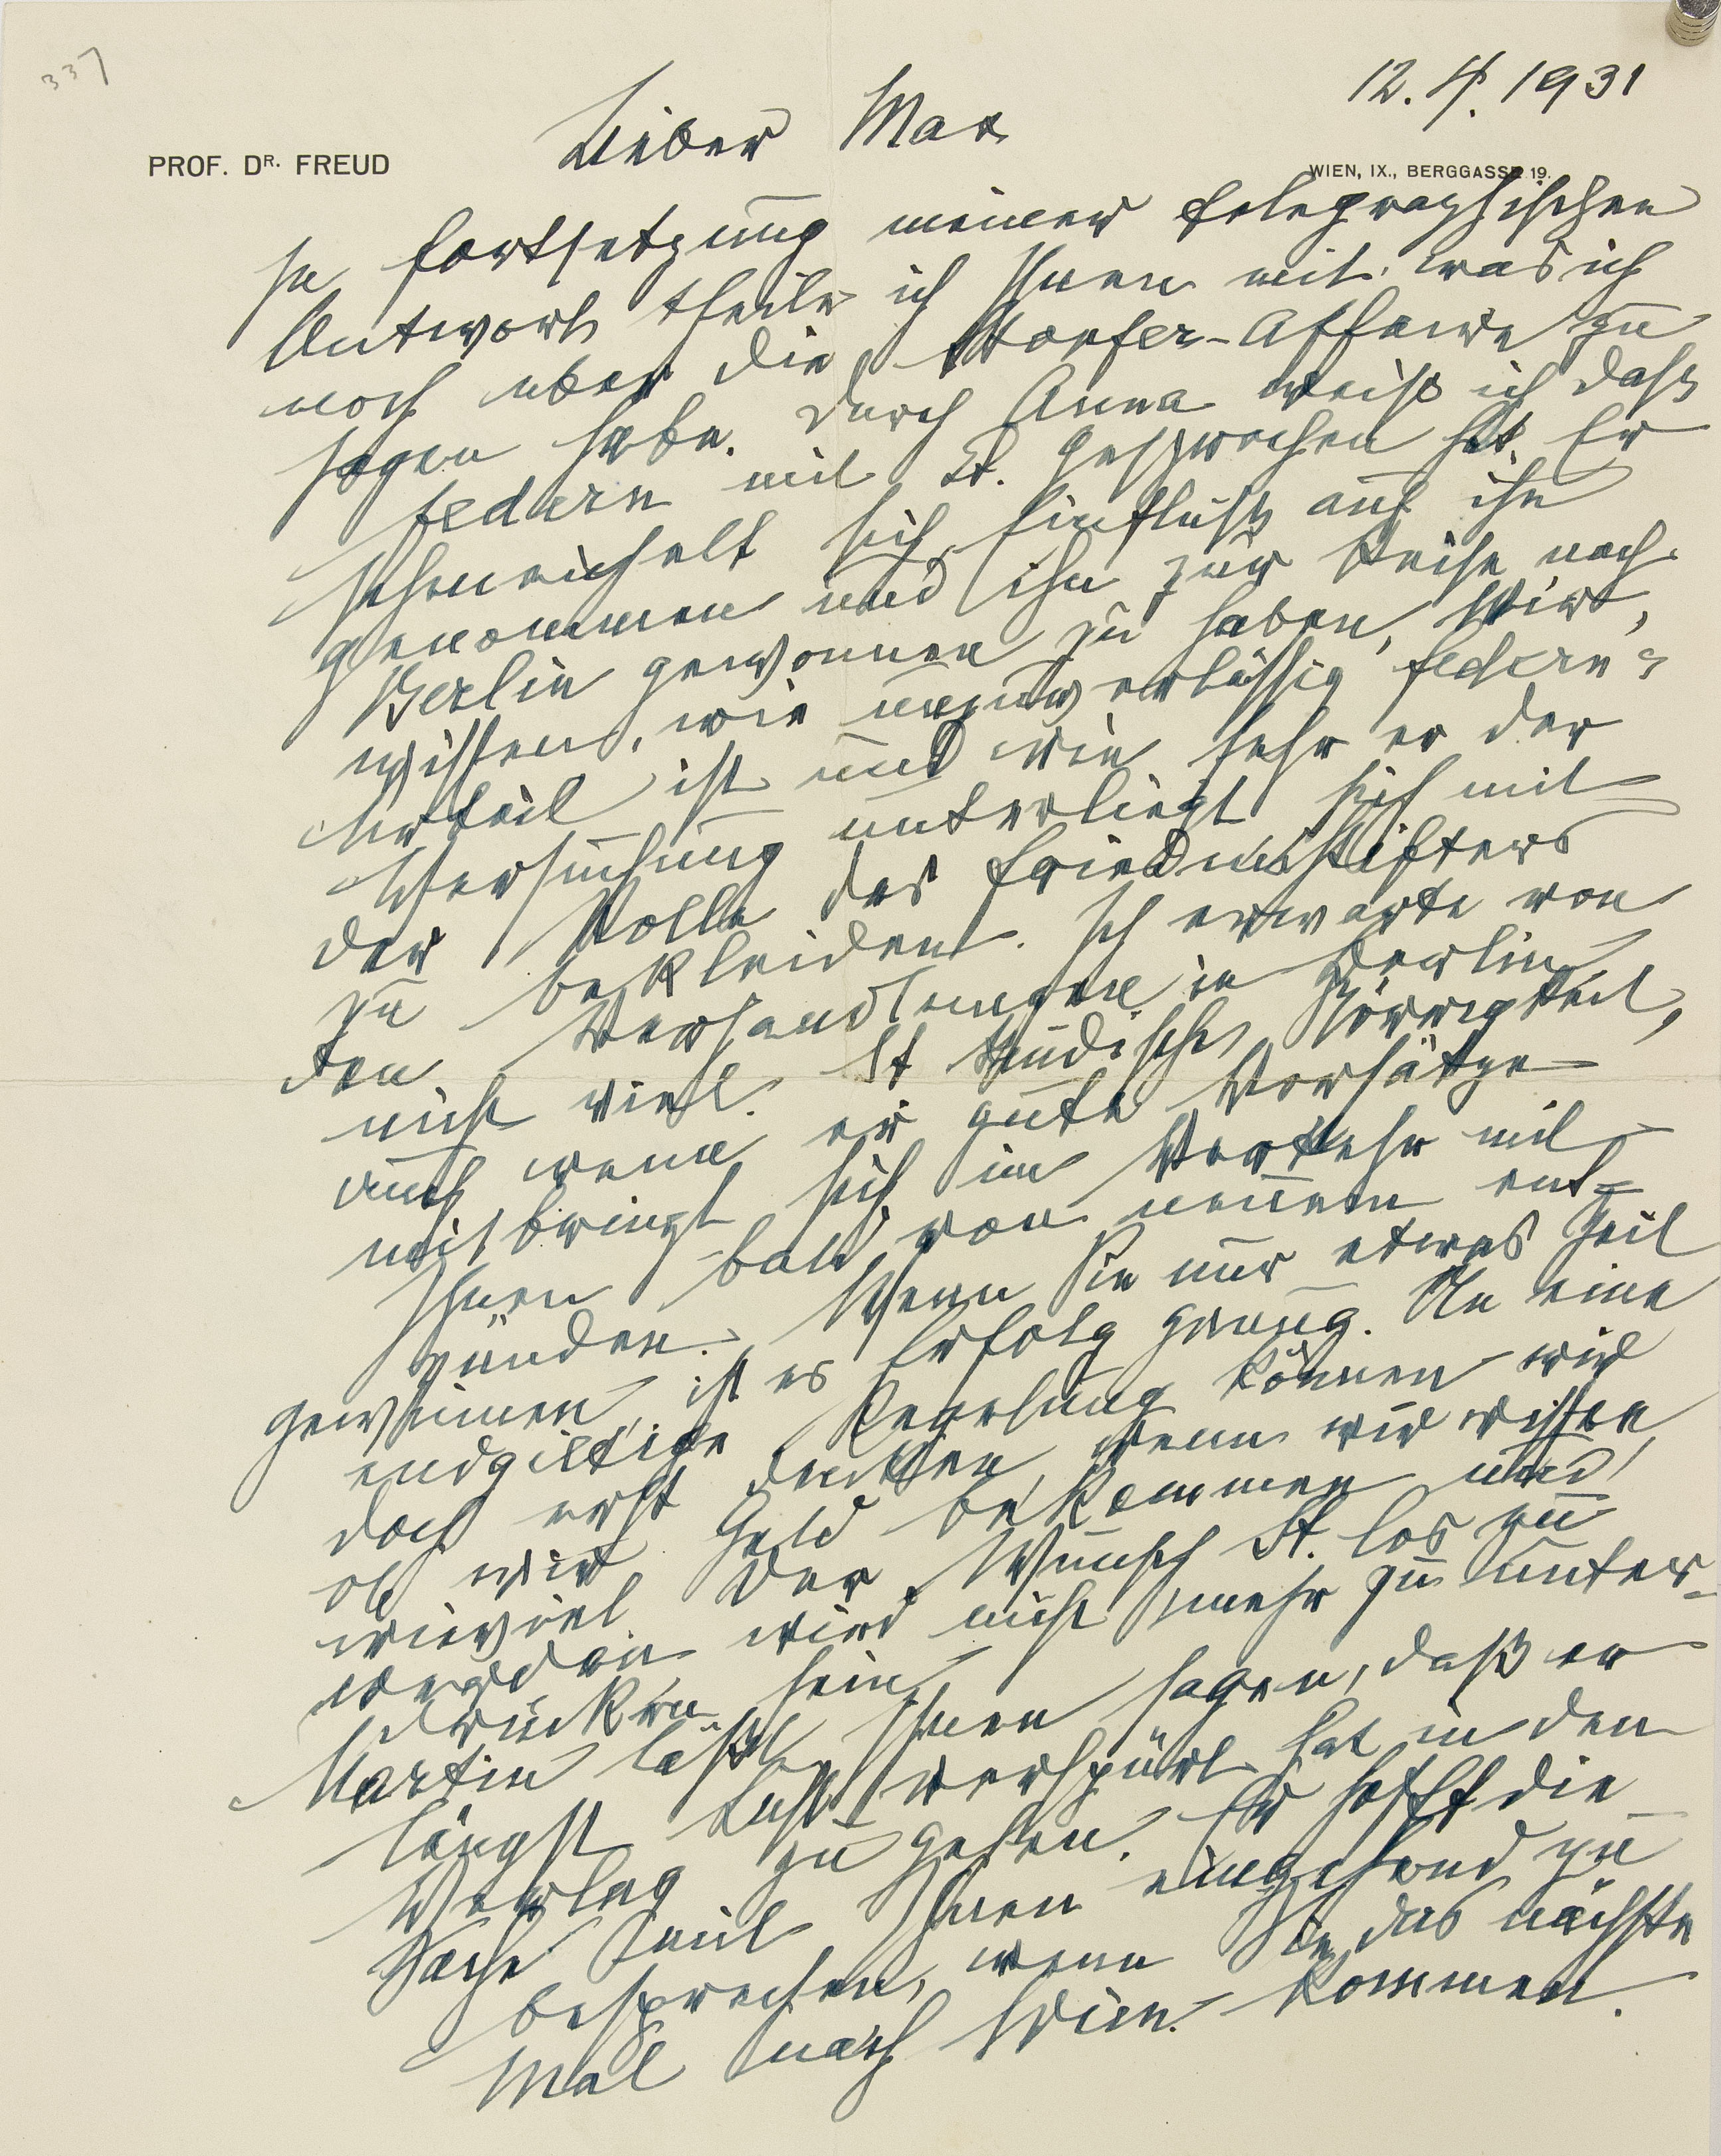 337
12. 4. 1931
Lieber Max
PROF. DR. FREUD
WIEN, IX., BERGGASSE 19.
In Fortsetzung meiner telegraphischen
Antwort theile ich Ihnen mit, was ich
noch über die Storfer-Affaire zu
sagen habe. Durch Anna weiß ich daß
Federn mit St. gesprochen hat. Er
schmeichelt sich, Einfluß auf ihn
genommen und ihn zur Reise nach
Berlin gewonnen zu haben. Wir
wissen, wie unzuverlässig Federn's
Urteil ist und wie sehr er der
Versuchung unterliegt sich mit
der Rolle des Friedensstifters
zu bekleiden. Ich erwarte von
den Verhandlungen in Berlin
nicht viel. St
auch wenn er gute Vorsätze
mitbringt, sich im Verkehr mit
Ihnen bald von neuem ent-
zünden. Wenn Sie nur etwas Zeit
gewinnen, ist es Erfolg genug. An eine
endgiltige Regelung können wir
doch erst denken, wenn wir wissen,
ob wir Geld bekommen und
wieviel. Der Wunsch St. los zu
werden wird nicht mehr zu unter-
drücken sein.
Martin läßt Ihnen sagen, daß er
längst Lust verspürt hat in den
Verlag zu gehen. Er hofft die
Sache mit Ihnen eingehend zu
besprechen, wenn Sie das nächste
Mal nach Wien kommen.